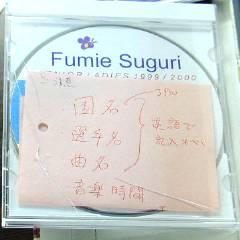 Fumie Suguri
SENIOR LADIES 1999 / 2000
注意
国名
選手名
曲名
音楽時間
英語で
記入すべし